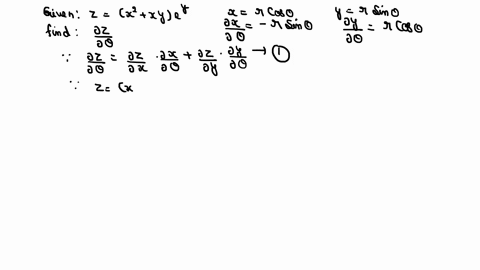 Given: z = (x² + xy) e^y x = r Cosθ y = r Sinθ
find: ∂z/∂θ ∂x/∂θ = - r Sinθ ∂y/∂θ = r Cosθ
∵ ∂z/∂θ = ∂z/∂x · ∂x/∂θ + ∂z/∂y · ∂y/∂θ → ①
∵ z = (x